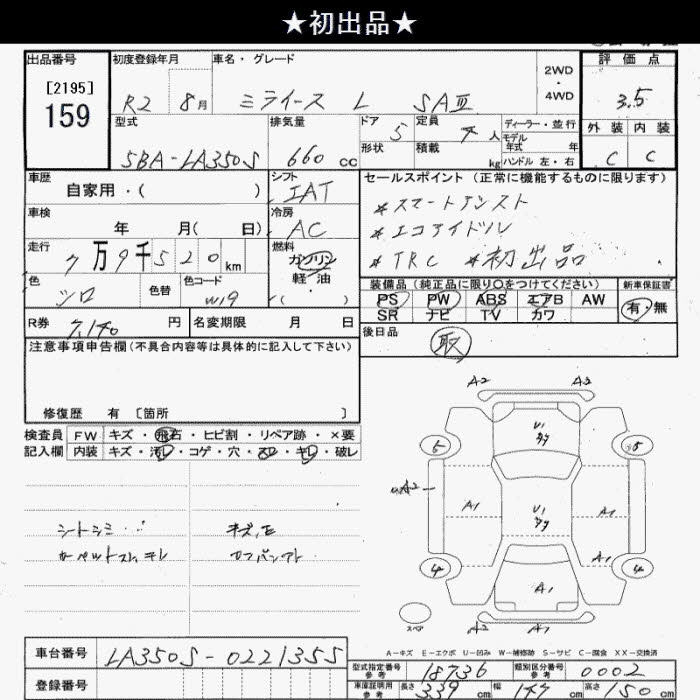 ★初出品★
出品番号 初度登録年月 車名・グレード 2WD ・ 4WD 評価点
[2195]
159
R2 8月 ミライース L SAⅢ 3.5
型式 排気量 ドア 5 定員 人 ディーラー・並行
モデル年式 年
外装 内装
5BA-LA350S 660 cc 形状 積載 kg ハンドル 左・右 C C
車歴 シフト セールスポイント (正常に機能するものに限ります)
自家用・( ) IAT *スマートアシスト
車検 冷房 *エコアイドル
年 月( 日) AC *TRC *初出品
走行 燃料
7万9千520km ガソリン
軽・油
・
( )
色 色替 色コード 装備品 (純正品に限り○をつけてください) 新車保証書
シロ W19 PS PW ABS エアB AW 有・無
SR ナビ TV カワ
R券 7,140 円 名変期限 月 日 後日品
取
注意事項申告欄(不具合内容等は具体的に記入して下さい)
修復歴 有 [箇所 ]
検査員 FW キズ・飛石・ヒビ割・リペア跡・×要
記入欄 内装 キズ・汚レ・コゲ・穴・スレ・キレ・破レ
シートシミ キズ,モ
カーペットスレ,キレ
A2 A2
U1
5 5
A2
A1 U1 A1
A1
4 4
A1
スペア
A2 A1
A-キズ E-エクボ U-凹み W-補修跡 S-サビ C-腐食 XX-交換済
車台番号 LA350S-0221355
登録番号
型式指定番号 参考 18736 類別区分番号 参考 0002
車庫証明用 参考 長さ 339 cm 幅 147 cm 高さ 150 cm